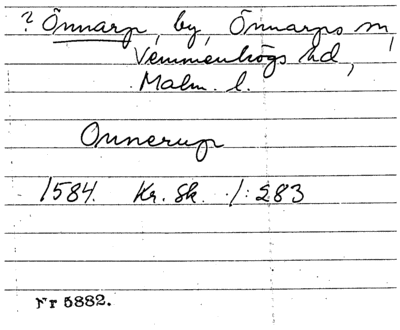 ? Önnarp, by, Önnarps sn,
Vemmenhögs hd,
Malm. l.
Onnerup
1584. Kr. Sk. 1:283
Nr 5882.